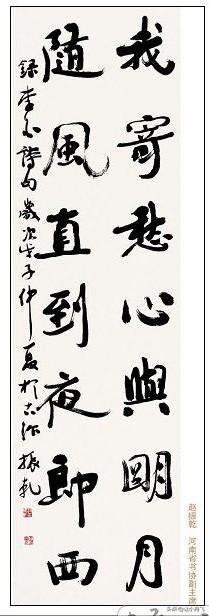 我寄愁心與明月
随風直到夜郎西
録李白詩句歲次戊子仲夏於古汴振乾
赵振乾 河南省书协副主席